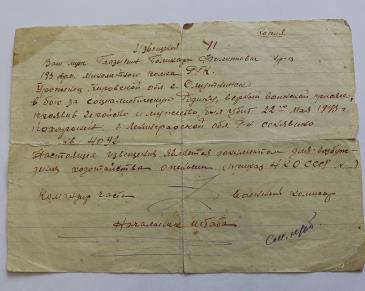 копия
Извещение
Ваш муж Поликарп Филиппович
193 Арм. минометного полка РГК
Уроженец Кировской обл.
в бою за социалистическую Родину, верный воинской присяге,
проявив геройство и мужество был убит 22 мая 1943 г.
похоронен в Ленинградской обл.
кв 4092
Настоящее извещение является документом для возбуж-
дения ходатайства о пенсии (приказ НКО СССР №)
Командир части военный комиссар
Начальник штаба